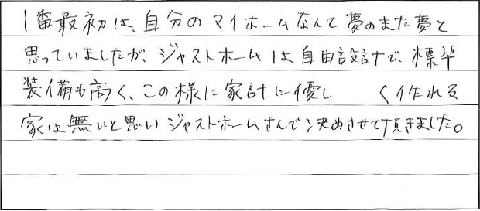 1番最初は、自分のマイホームなんて夢のまた夢と
思っていましたが、ジャストホームは自由設計で、標準
装備も高く、この様に家計に優し く作れる
家は無いと思いジャストホームさんで決めさせて頂きました。